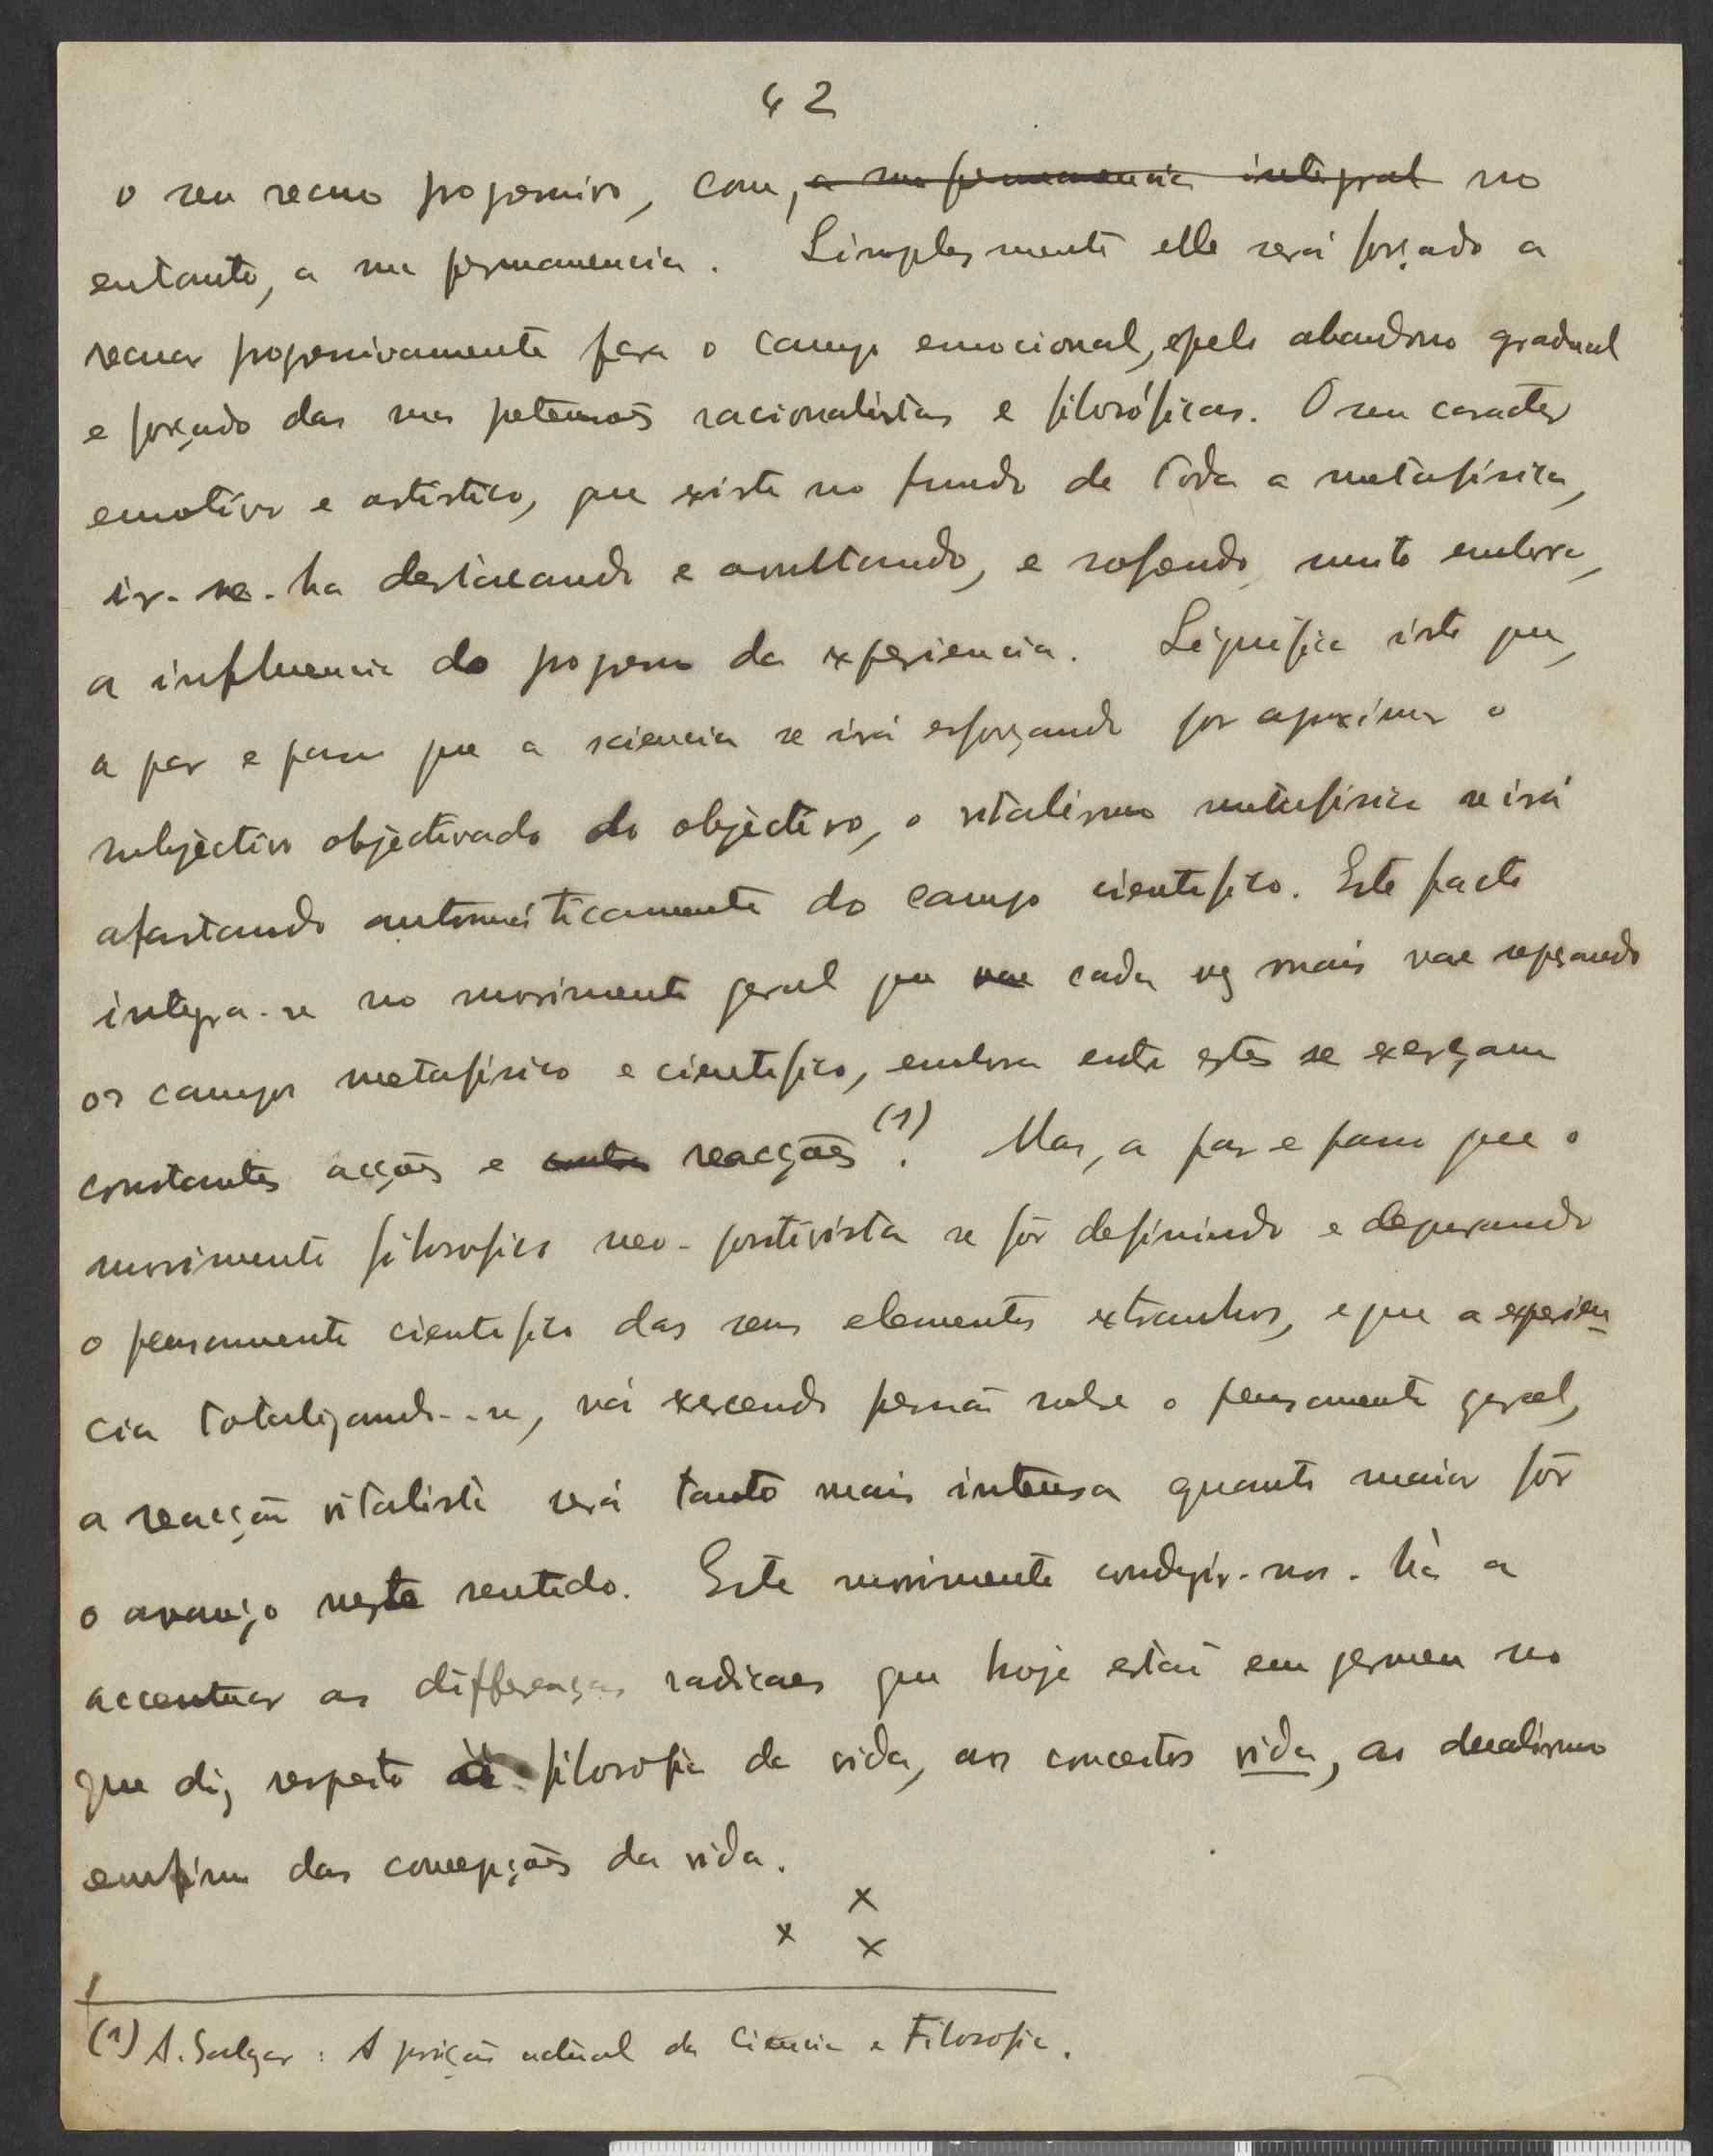 42
o seu recuo progressivo, com, a sua permanencia integral no
entanto, a sua permanencia. Simplesmente elle será forçado a
recuar progressivamente para o campo emocional, e pelo abandono gradual
e forçado das suas pretensões racionalistas e filosóficas. O seu caracter
emotivo e artistico, que existe no fundo de toda a metafísica,
ir-se-ha destacando e avultando, e sofrendo, muito embora,
a influencia do progresso da experiencia. Significa isto que,
a par e passo que a sciencia se irá esforçando por aproximar o
subjèctivo objèctivado do objèctivo, o vitalismo metafísico se irá
afastando automáticamente do campo cientifico. Este facto
integra-se no movimento geral que vae cada vez mais vae separando
os campos metafísico e cientifico, embora entre estes se exerçam
constantes acções e reacções (1). Mas, a par e passo que o
movimento filosofico neo-positivista se fôr definindo e depurando
o pensamento cientifico dos seus elementos extranhos, e que a experien-
cia totalizando-se, vá exercendo pressão sobre o pensamento geral,
a reacção vitalista será tanto mais intensa quanto maior fôr
o avanço neste sentido. Este movimento conduzir-nos-há a
accentuar as differenças radicaes que hoje estão em germen no
que diz respeito á filosofia da vida, aos conceitos vida, ao dualismo
emfim das concepções da vida.
x
x x
(1) A. Salazar: A posição actual da Ciencia e Filosofia.